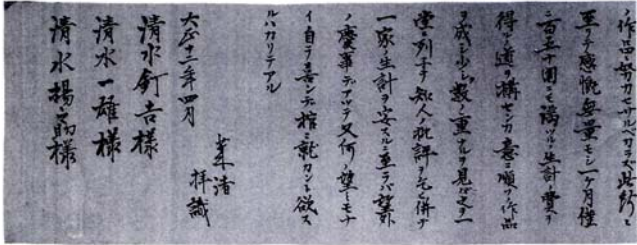 ノ作品ニ努力セサルヘカラス此紛ニ
至リテ感慨無量モシ一ケ月僅
二百五十圓ニモ満ツル生計ノ費ヲ
得ルノ道ヲ構センカ意ニ順フノ作品
ヲ成シ少シク数ノ重ナルヲ見ハ之ヲ一
堂ニ列シテ知人ノ批評ヲ乞ヒ併テ
一家ノ生計ヲ安スルニ至ラバ望外
ノ慶事デアツテ又何ノ望ミモナ
イ自ラ喜ンデ棺ニ就カント欲ス
ルバカリデアル
大正十三年四月
渚 拝識
清水釘吉様
清水一雄様
清水揚之助様